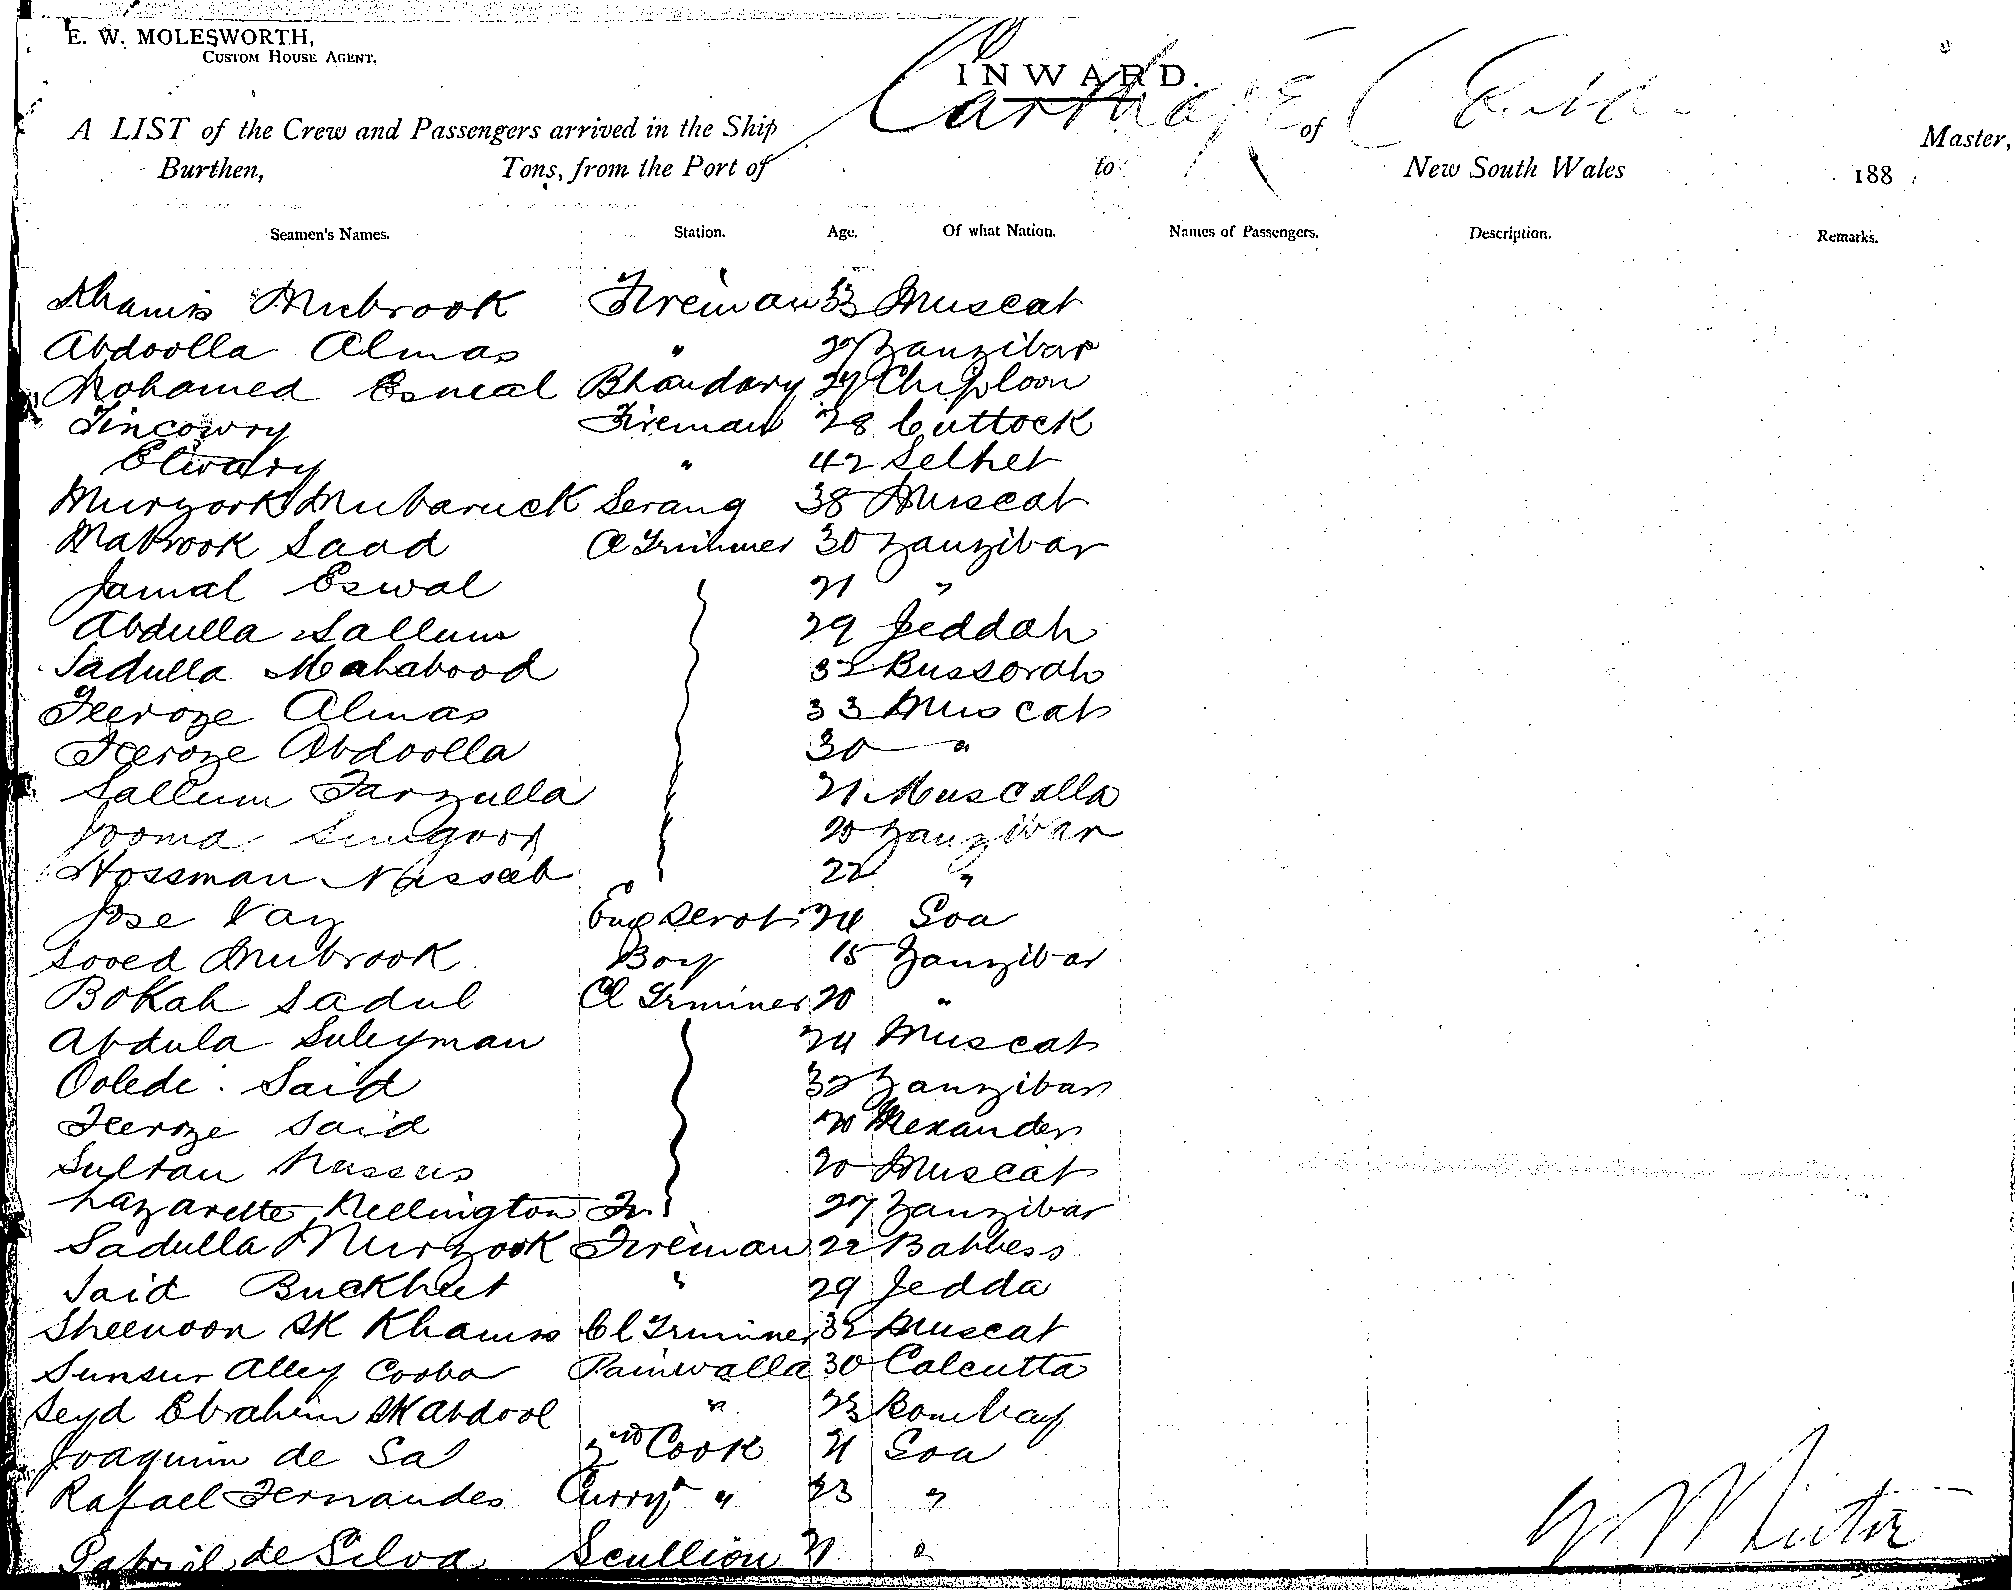 E. W. MOLESWORTH,
CUSTOM HOUSE AGENT.
INWARD.
Carthage
A LIST of the Crew and Passengers arrived in the Ship of Master,
Burthen, Tons, from the Port of to New South Wales 188
Seamen's Names. Station. Age. Of what Nation. Names of Passengers. Description. Remarks.
Khamis Mubrook Fireman 33 Muscat
Abdoolla Almas " 27 Zanzibar
Mohamed Esmeal Bhandary 27 Chiploon
Tincowry Fireman 28 Cuttock
Elwarry " 42 Selhet
Murzook Mubaruck Serang 38 Muscat
Mabrook Saad Cl Trimmer 30 Zanzibar
Jamal Eswal 21 "
Abdulla Sallum 29 Jeddah
Sadulla Mahabood 32 Bussorah
Feeroze Almas 33 Muscat
Feeroze Abdoolla 30 "
Sallum Farzulla 21 Muscalla
Jooma 20 Zanzibar
Hossman Nasseeb 22 "
Jose Vaz 24 Goa
Sooed Mubrook Boy 15 Zanzibar
Bokah Sadul Cl Trimmer 20 "
Abdula Suleyman 24 Muscat
Oolede Said 32 Zanzibar
Feeroze Said 20 Alexander
Sultan 20 Muscat
Lazarette Nellington Fr 27 Zanzibar
Sadulla Murzook Fireman 22 Babbess
Said Buckheet " 29 Jedda
Sheenoon SK Khamis Cl Trimmer 32 Muscat
Sunsur Alley Cooba Painwalla 30 Calcutta
Seyd Ebrahim SK Abdool " 23 Bombay
Joaquim de Sa 2nd Cook 21 Goa
Rafael Fernandes Curry " 23 "
Gabriel de Silva Scullion 21 "